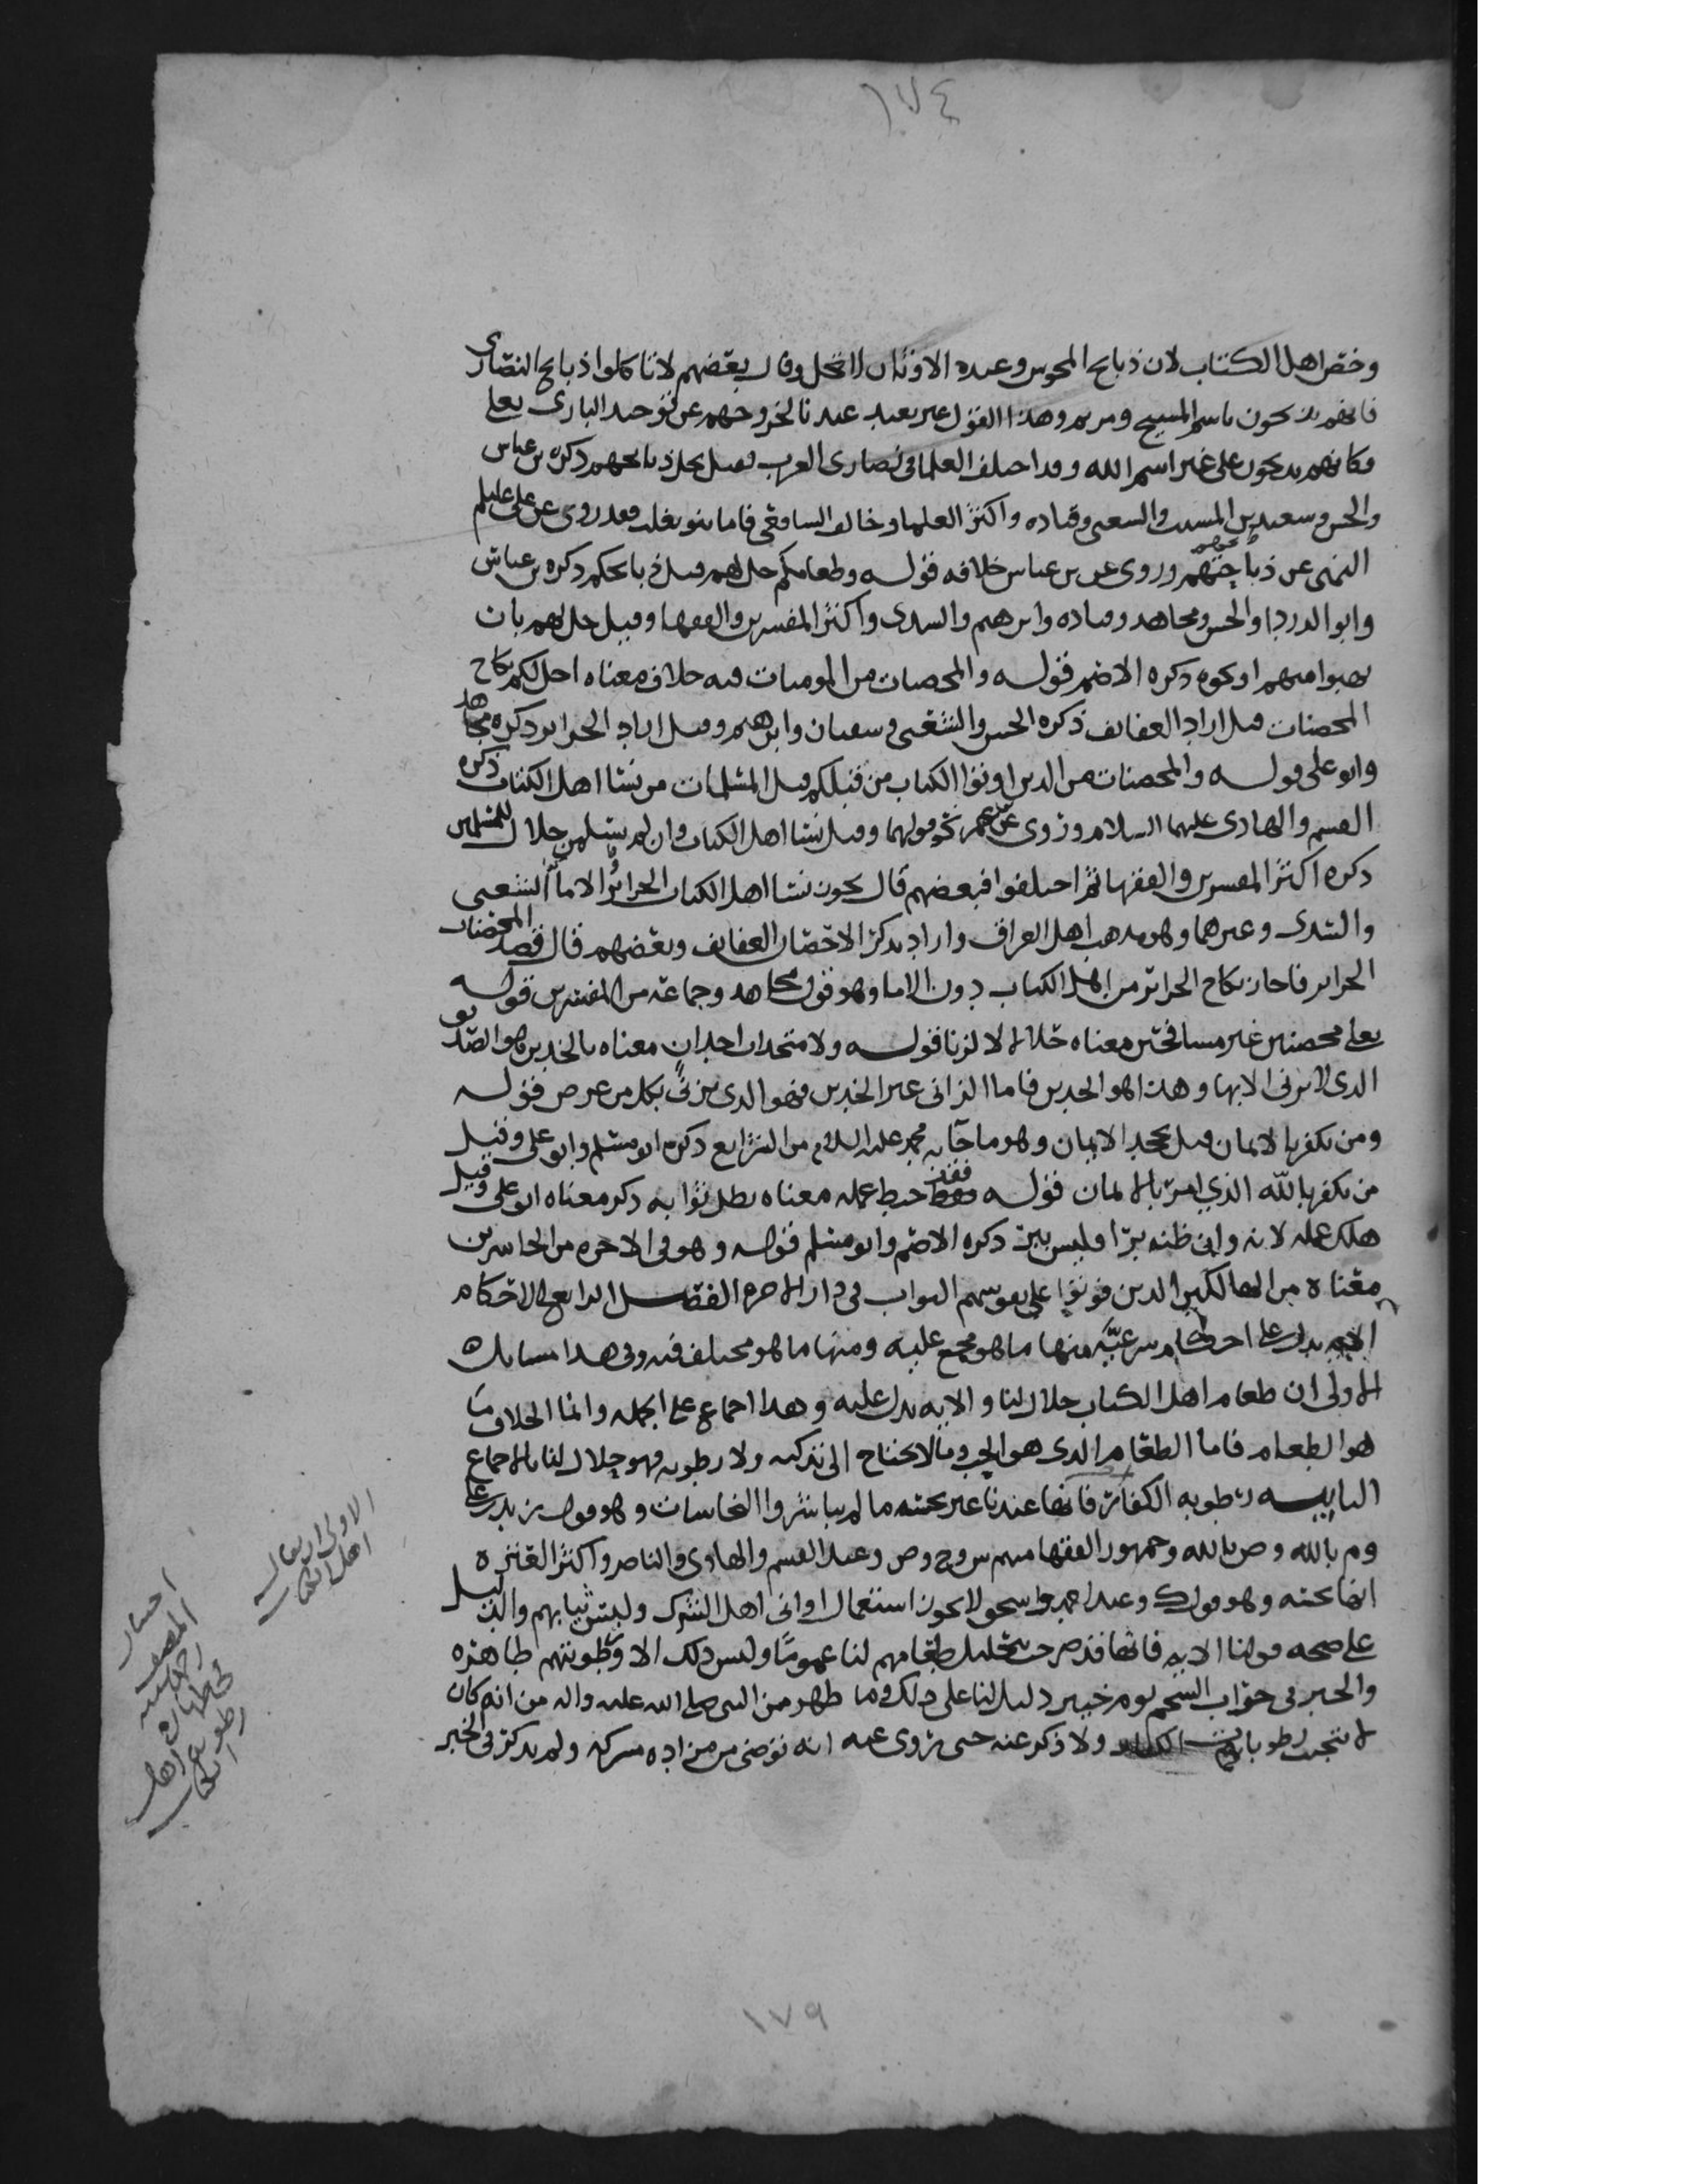 ١٧٤
وخص اهل الكتاب لان ذبايح المجوس وعبده الاوثان لا تحل وقال بعضهم لا تاكلوا ذبايح النصارى
فانهم يذبحون باسم المسيح ومريم وهذا القول غير بعيد عندنا لخروجهم عن توحيد البارى تعلى
فكانهم يذبحون على غير اسم الله وقد اختلف العلما فى نصارى العرب فقيل تحل ذبايحهم ذكره بن عباس
والحسن وسعيد بن المسيب والشعبى وقتاده واكثر العلما وخالف الشافعى فاما بنو تغلب فقد روى عن على عليلم
النهى عن ذبايحهم وروى عن بن عباس خلافه قوله وطعامكم حل لهم قيل ذبايحكم ذكره بن عباس
وابو الدردا والحسن ومجاهد وقتاده وابرهيم والسدى واكثر المفسرين والفقها وقيل حل لهم بان
يهبوا منهم او نحوه ذكره الاصم قوله والمحصنات من المومنات فيه حذف معناه احل لكم نكاح
المحصنات قيل اراد العفايف ذكره الحسن والشعبى وسفيان وابرهيم وقيل اراد الحراير ذكره مجاهد
وابو على قوله والمحصنات من الذين اوتوا الكتاب من قبلكم قيل المسلمات من نسا اهل الكتاب ذكره
القسم والهادى عليهما السلام وروى عن بن عمر نحو قولهما وقيل نسا اهل الكتاب وان لم يسلمن حلال للمسلمين
ذكره اكثر المفسرين والفقها ثم اختلفوا فبعضهم قال يجوز نسا اهل الكتاب الحراير والاما الشعبى
والسدى وغيرهما وهو مذهب اهل العراق واراد بذكر الاحصان العفايف وبعضهم قال قصد المحصنات
الحراير فاجاز نكاح الحراير من اهل الكتاب دون الاما وهو قول مجاهد وجماعة من المفسرين قوله
تعلى محصنين غير مسافحين معناه حلالا لا لزنا قوله ولا متخذات اخدان معناه بالخدين وهو الصديق
الذى لا يزنى الا بها وهذا هو الخدين فاما الزانى غير الخدين فهو الذى يزنى بكل من عرض قوله
ومن يكفر بالايمان قيل يجحد الايمان وهو ما جا به محمد عليه السلام من الشرايع ذكره ابو مسلم وابو على وقيل
من يكفر بالله الذي امر بالايمان قوله فقد حبط عمله معناه بطل ثوابه ذكر معناه ابو على وقيل
هلك عمله لانه وان ظنه برا فليس ببر ذكره الاصم وابو مسلم قوله وهو فى الاخره من الخاسرين
معناه من الهالكين الذين فوتوا على نفوسهم الثواب فى دار الاخره الفصل الرابع فى الاحكام
الايه تدل على احكام شرعيه منها ما هو مجمع عليه ومنها ما هو مختلف فيه وفى هذا مسايل ه
الاولى ان طعام اهل الكتاب حلال لنا والايه تدل عليه وهذا اجماع على الجمله وانما الخلاف ما
هو الطعام فاما الطعام الذى هو الحب وما لا يحتاج الى تذكيه ولا رطوبه فهو حلال لنا بالاجماع
الثانيه رطوبه الكفار فانها عندنا غير نجسه ما لم يباشروا النجاسات وهو قول ز يدل على
وم بالله وص بالله وجمهور الفقها منهم س وح وص وعند القسم والهادى والناصر واكثر العتره
انها نجسه وهو قول ك وعند احمد واسحق لا يجوز استعمال اوانى اهل الشرك ولبس ثيابهم والدليل
على صحه قولنا الايه فانها قد صرحت بتحليل طعامهم لنا عموما وليس ذلك الا ورطوبتهم طاهره
والخبر فى جراب الشحم يوم خيبر دليل لنا على ذلك وما ظهر من النبى صلى الله عليه واله من انه كان
لا يتجنب رطوبات ولا ذكر عنه حتى روى عنه انه توضى من مزاده مشركه ولم يذكر فى الخبر
الاولى ان يقال
اهل الكتاب
احسان
المصنف
رحمه الله
طهاره
رطوبه اهل
الكتاب
١٧٩